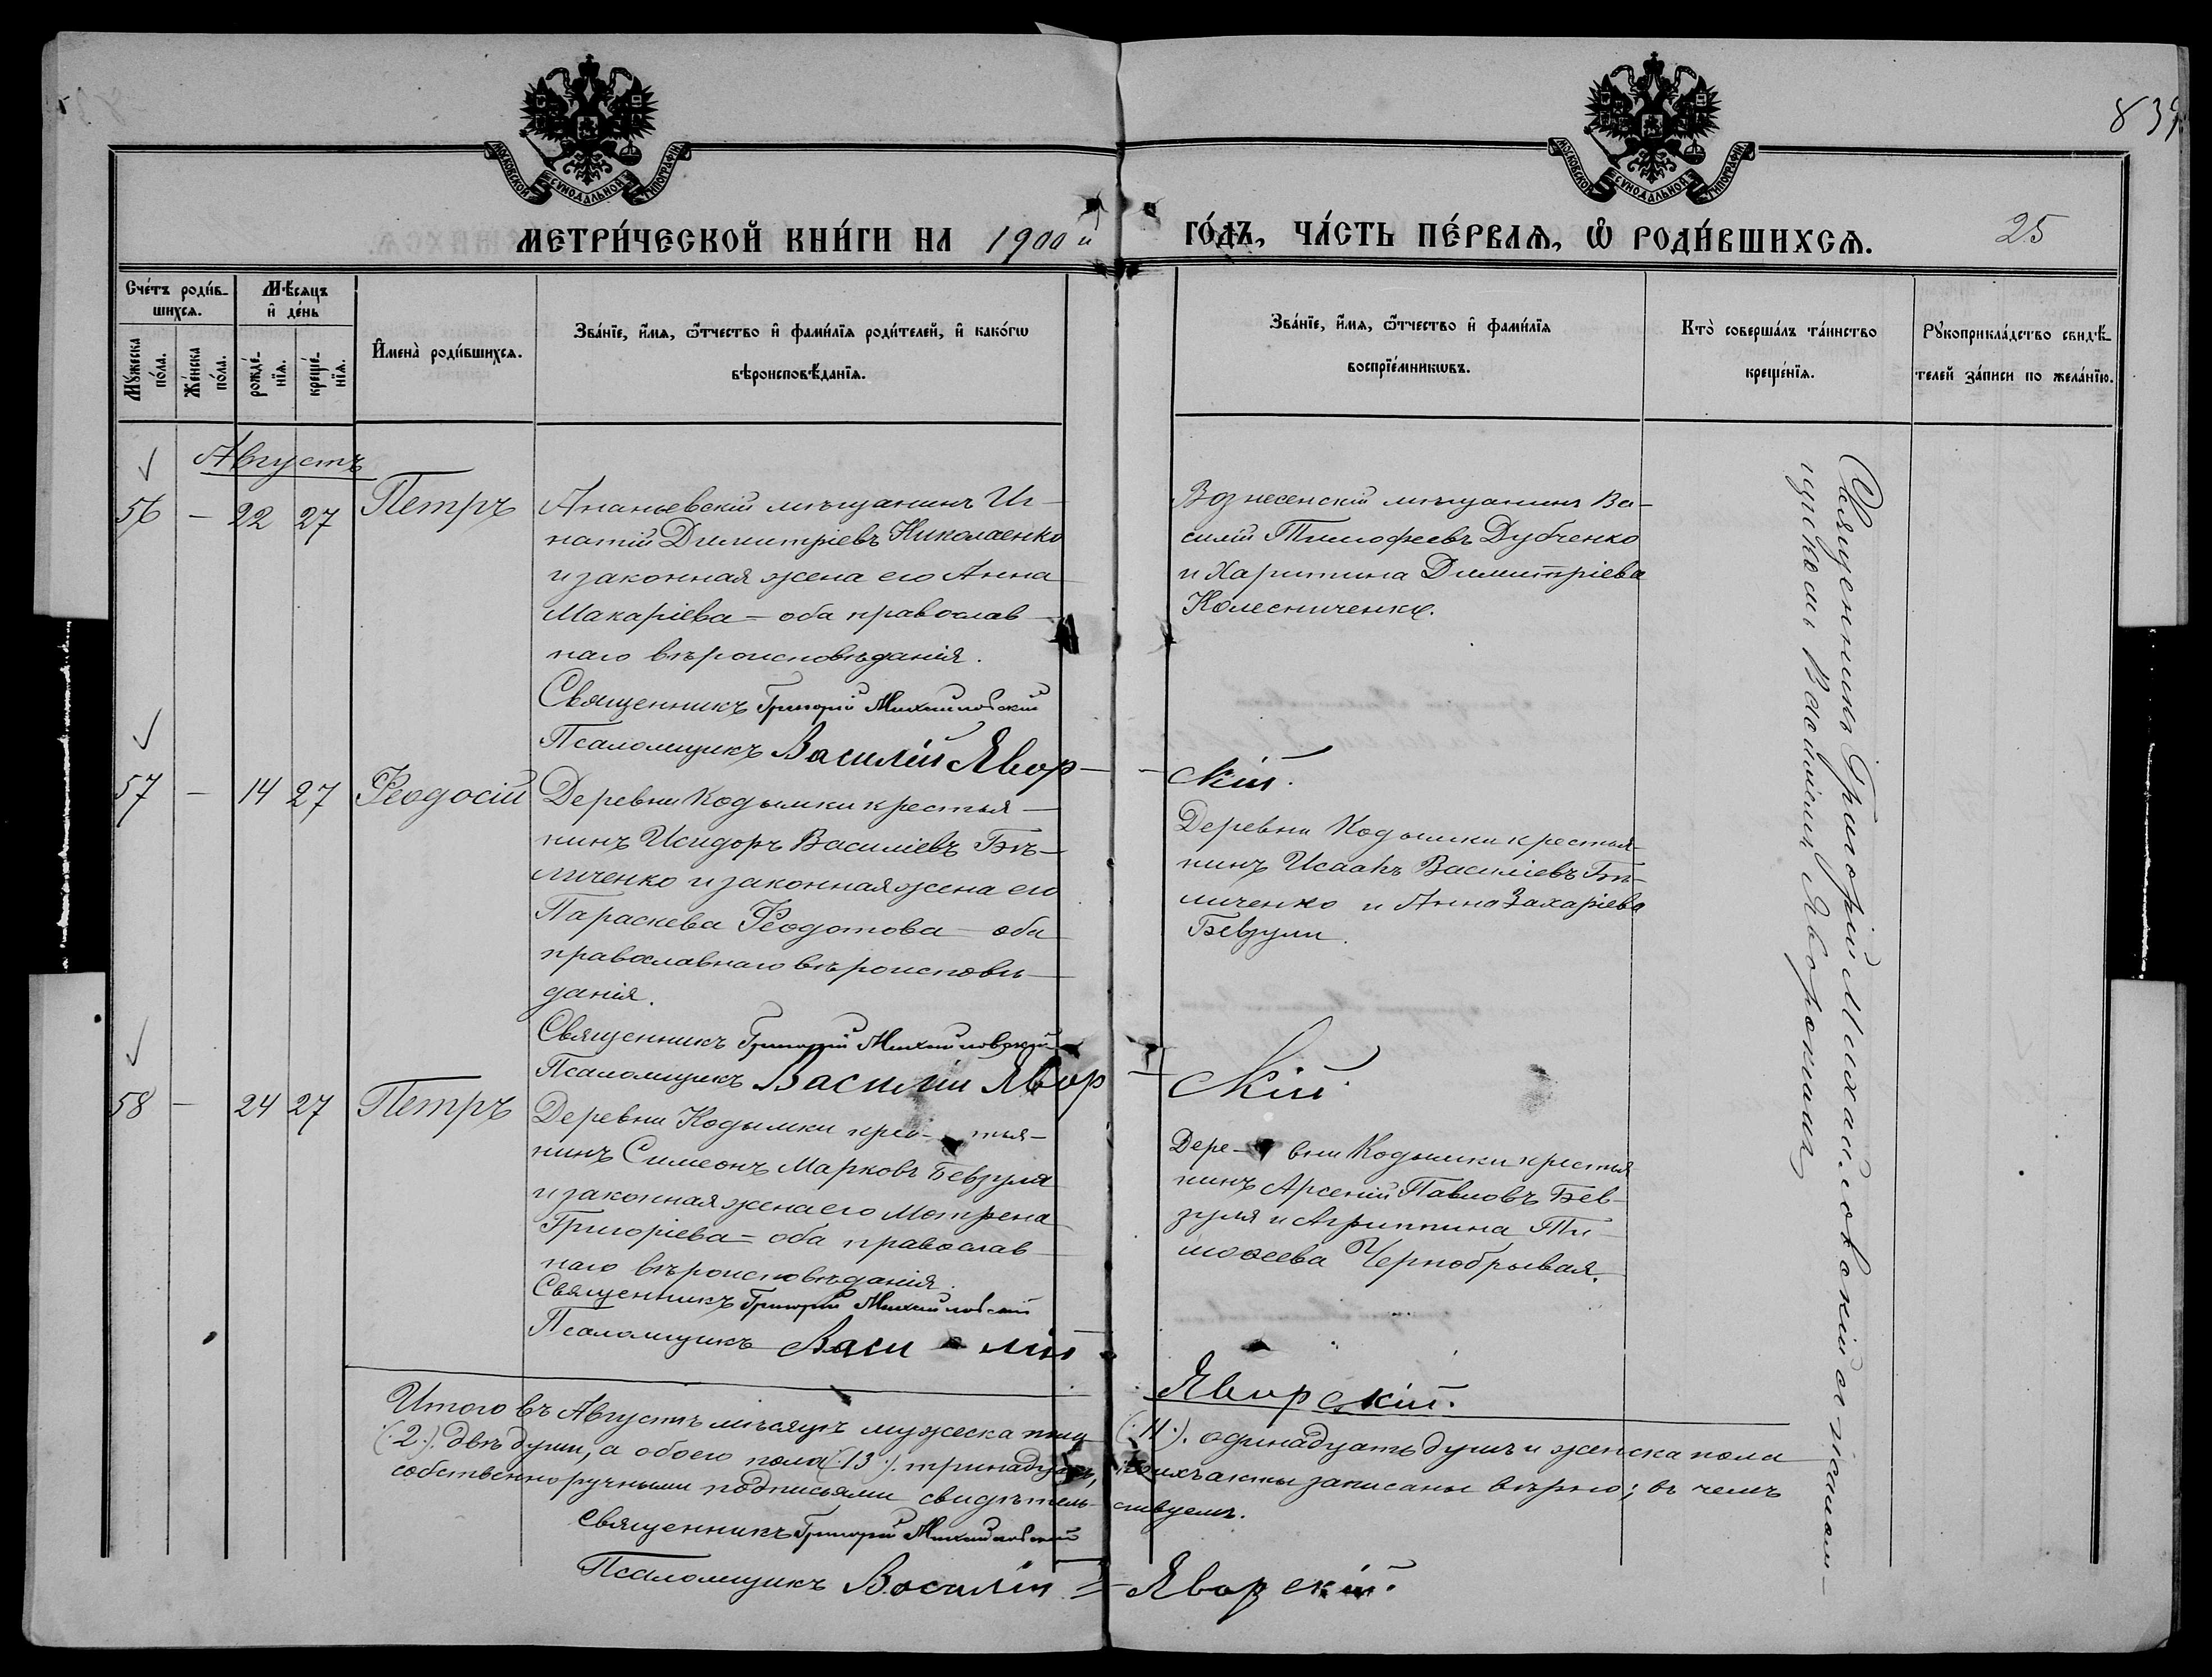 839
МОСКОВСКОЙ СѴНОДАЛЬНОЙ ТИПОГРАФІИ
МОСКОВСКОЙ СѴНОДАЛЬНОЙ ТИПОГРАФІИ
МЕТРИ́ЧЕСКОЙ КНИ́ГИ НА 1900 й ГО́ДЪ, ЧА́СТЬ ПЕ́РВАѦ, Ѡ҆ РОДИ́ВШИХСѦ.
25
Сче́тъ роди́в-
шихсѧ.
Мꙋ́жеска
по́ла.
Же́нска
по́ла.
Мѣ́сѧцъ
и҆ де́нь
рожде́-
нїѧ.
креще́-
нїѧ.
И҆мена̀ роди́вшихсѧ.
Зва́нїе, и҆́мѧ, ѻ҆́тчество и҆ фами́лїѧ роди́телей, и҆ како́гѡ
вѣроисповѣ́данїѧ.
Зва́нїе, и҆́мѧ, ѻ҆́тчество и҆ фами́лїѧ
воспрїе́мникѡвъ.
Кто̀ соверша́лъ та́инство
креще́нїѧ.
Рꙋкоприкла́дство свидѣ́-
телей за́писи по жела́нїю.
Августъ
56 - 22 27 Петръ
Ананьевскій мѣщанинъ Иг-
натій Димитріевъ Николаенко
и законная жена его Анна
Макаріева - оба православ-
наго вѣроисповѣданія.
Священникъ Григорій Михайловскій
Псаломщикъ Василій Явор-
-скій.
Вознесенскій мѣщанинъ Ва-
силій Тимофеевъ Дубченко
и Харитина Димитріева
Колесниченко.
57 - 14 27 Феодосій
Деревни Кодымки крестья-
нинъ Исидоръ Василіевъ Бѣ-
личенко и законная жена его
Параскева Феодотова - оба
православнаго вѣроисповѣ-
данія.
Священникъ Григорій Михайловскій
Псаломщикъ Василій Явор
-скій
Деревни Кодымки крестья-
нинъ Исаакъ Василіевъ Бѣ-
личенко и Анна Захаріева
Бевзули.
58 - 24 27 Петръ
Деревни Кодымки крес-тья-
нинъ Симеонъ Марковъ Бевзуля
и законная жена его Мотрена
Григоріева - оба православ-
наго вѣроисповѣданія.
Священникъ Григорій Михайловскій
Псаломщикъ Василій
Яворскій.
Дере-вни Кодымки крестья
нинъ Арсеній Павловъ Бев-
зуля и Агриппина Ти-
моѳеева Чернобрывая.
Священникъ Григорій Михайловскій съ псалом-
щикомъ Василіемъ Яворскимъ
Итого въ Августѣ мѣсяцѣ мужеска пола (11). одинадцать душъ и женска пола
(2). двѣ души, а обоего пола (13). тринадцать, коихъ акты записаны вѣрно; въ чемъ
собственноручными подписьями свидѣтель-ствуемъ.
Священникъ Григорій Михайловскій
Псаломщикъ Василій - Яворскій.